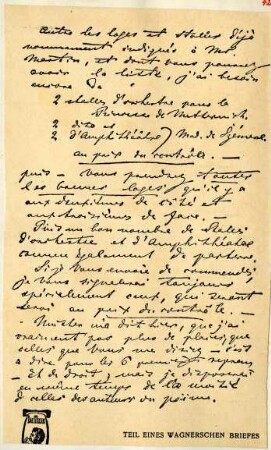 outre les loges et stalles déjà
nommément indiqués à Mr.
Martin, et dont vous pouvez
avoir la liste, j'ai besoin
encore de
2 stalles d'orchestre pour la
Princesse de Metternich.
2 dito et
2 d'Amphithéâtre Mad. de
au prix du contrôle. —
puis — vous prendrez toutes
les bonnes loges, qu'il y a
aux deuxièmes de côté et
aux troisièmes de face. —
Puis un bon nombre de stalles
d'orchestre et d'Amphithéâtre
comme également de parterre.
Si je vous envoie de commandes,
je vous signalerai toujours
spécialement ceux, qui seront
servi au prix du contrôle. —
Nuitter m'a dit hier, que j'ai
vraiment pas plus de places, que
celles que vous me dites — c'est
à dire pour les 6
— Et de droit; mais je disposerai
en même temps de la moitié
de celles des auteurs du poème.
TEIL EINES WAGNERSCHEN BRIEFES